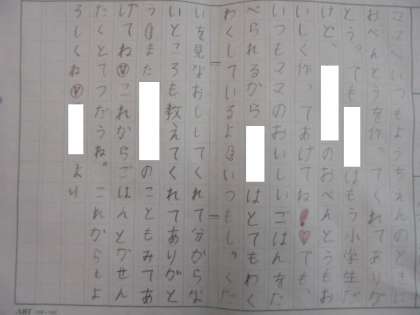 ママへいつもようちえんのとき
おべんとうを作ってくれてありが
とう。でも はもう小学生だ
けど、 のおべんとうもお
いしく作ってあげてね!♡でも、
いつもママのおいしいごはんをた
べられるから はとてもわく
わくしているよ いつもしゅくだ
いを見なおししてくれて分からな
いところも教えてくれてありがと
う また のこともみてあ
げてね♡これからごはんとかせん
たくとてつだうね。これからもよ
ろしくね♡ より